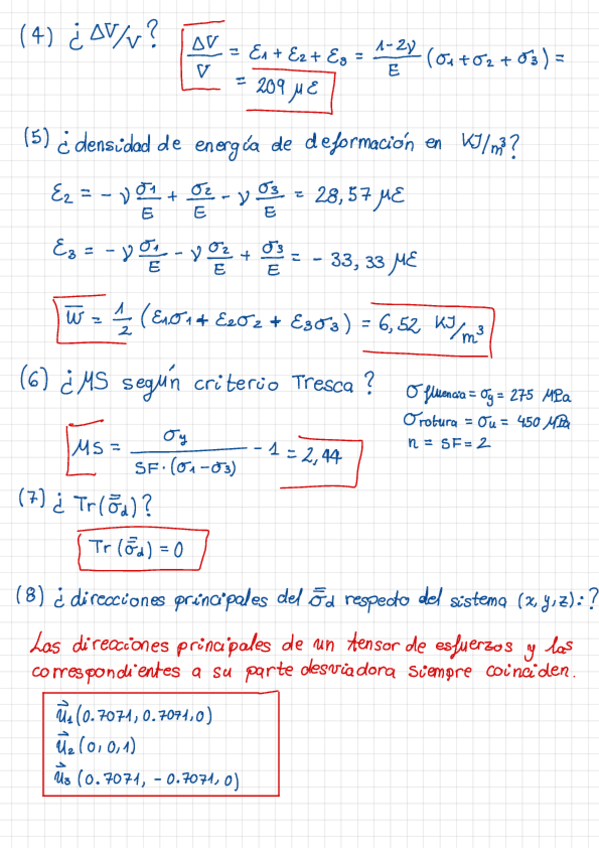 (4) ¿ ΔV/V ? ΔV/V = ε1 + ε2 + ε3 = (1-2ν)/E (σ1 + σ2 + σ3) =
= 209 με
(5) ¿densidad de energía de deformación en KJ/m³?
ε2 = - ν σ1/E + σ2/E - ν σ3/E = 28,57 με
ε3 = - ν σ1/E - ν σ2/E + σ3/E = - 33,33 με
w̅ = 1/2 (ε1σ1 + ε2σ2 + ε3σ3) = 6,52 KJ/m³
(6) ¿MS según criterio Tresca?
σ fluencia = σy = 275 MPa
σ rotura = σu = 450 MPa
n = SF = 2
MS = σy / (SF·(σ1-σ3)) - 1 = 2,44
(7) ¿ Tr(σ̿d)?
Tr (σ̿d) = 0
(8) ¿direcciones principales del σ̿d respecto del sistema (x,y,z):?
Las direcciones principales de un tensor de esfuerzos y las
correspondientes a su parte desviadora siempre coinciden.
u⃗1 (0.7071, 0.7071, 0)
u⃗2 (0, 0, 1)
u⃗3 (0.7071, -0.7071, 0)